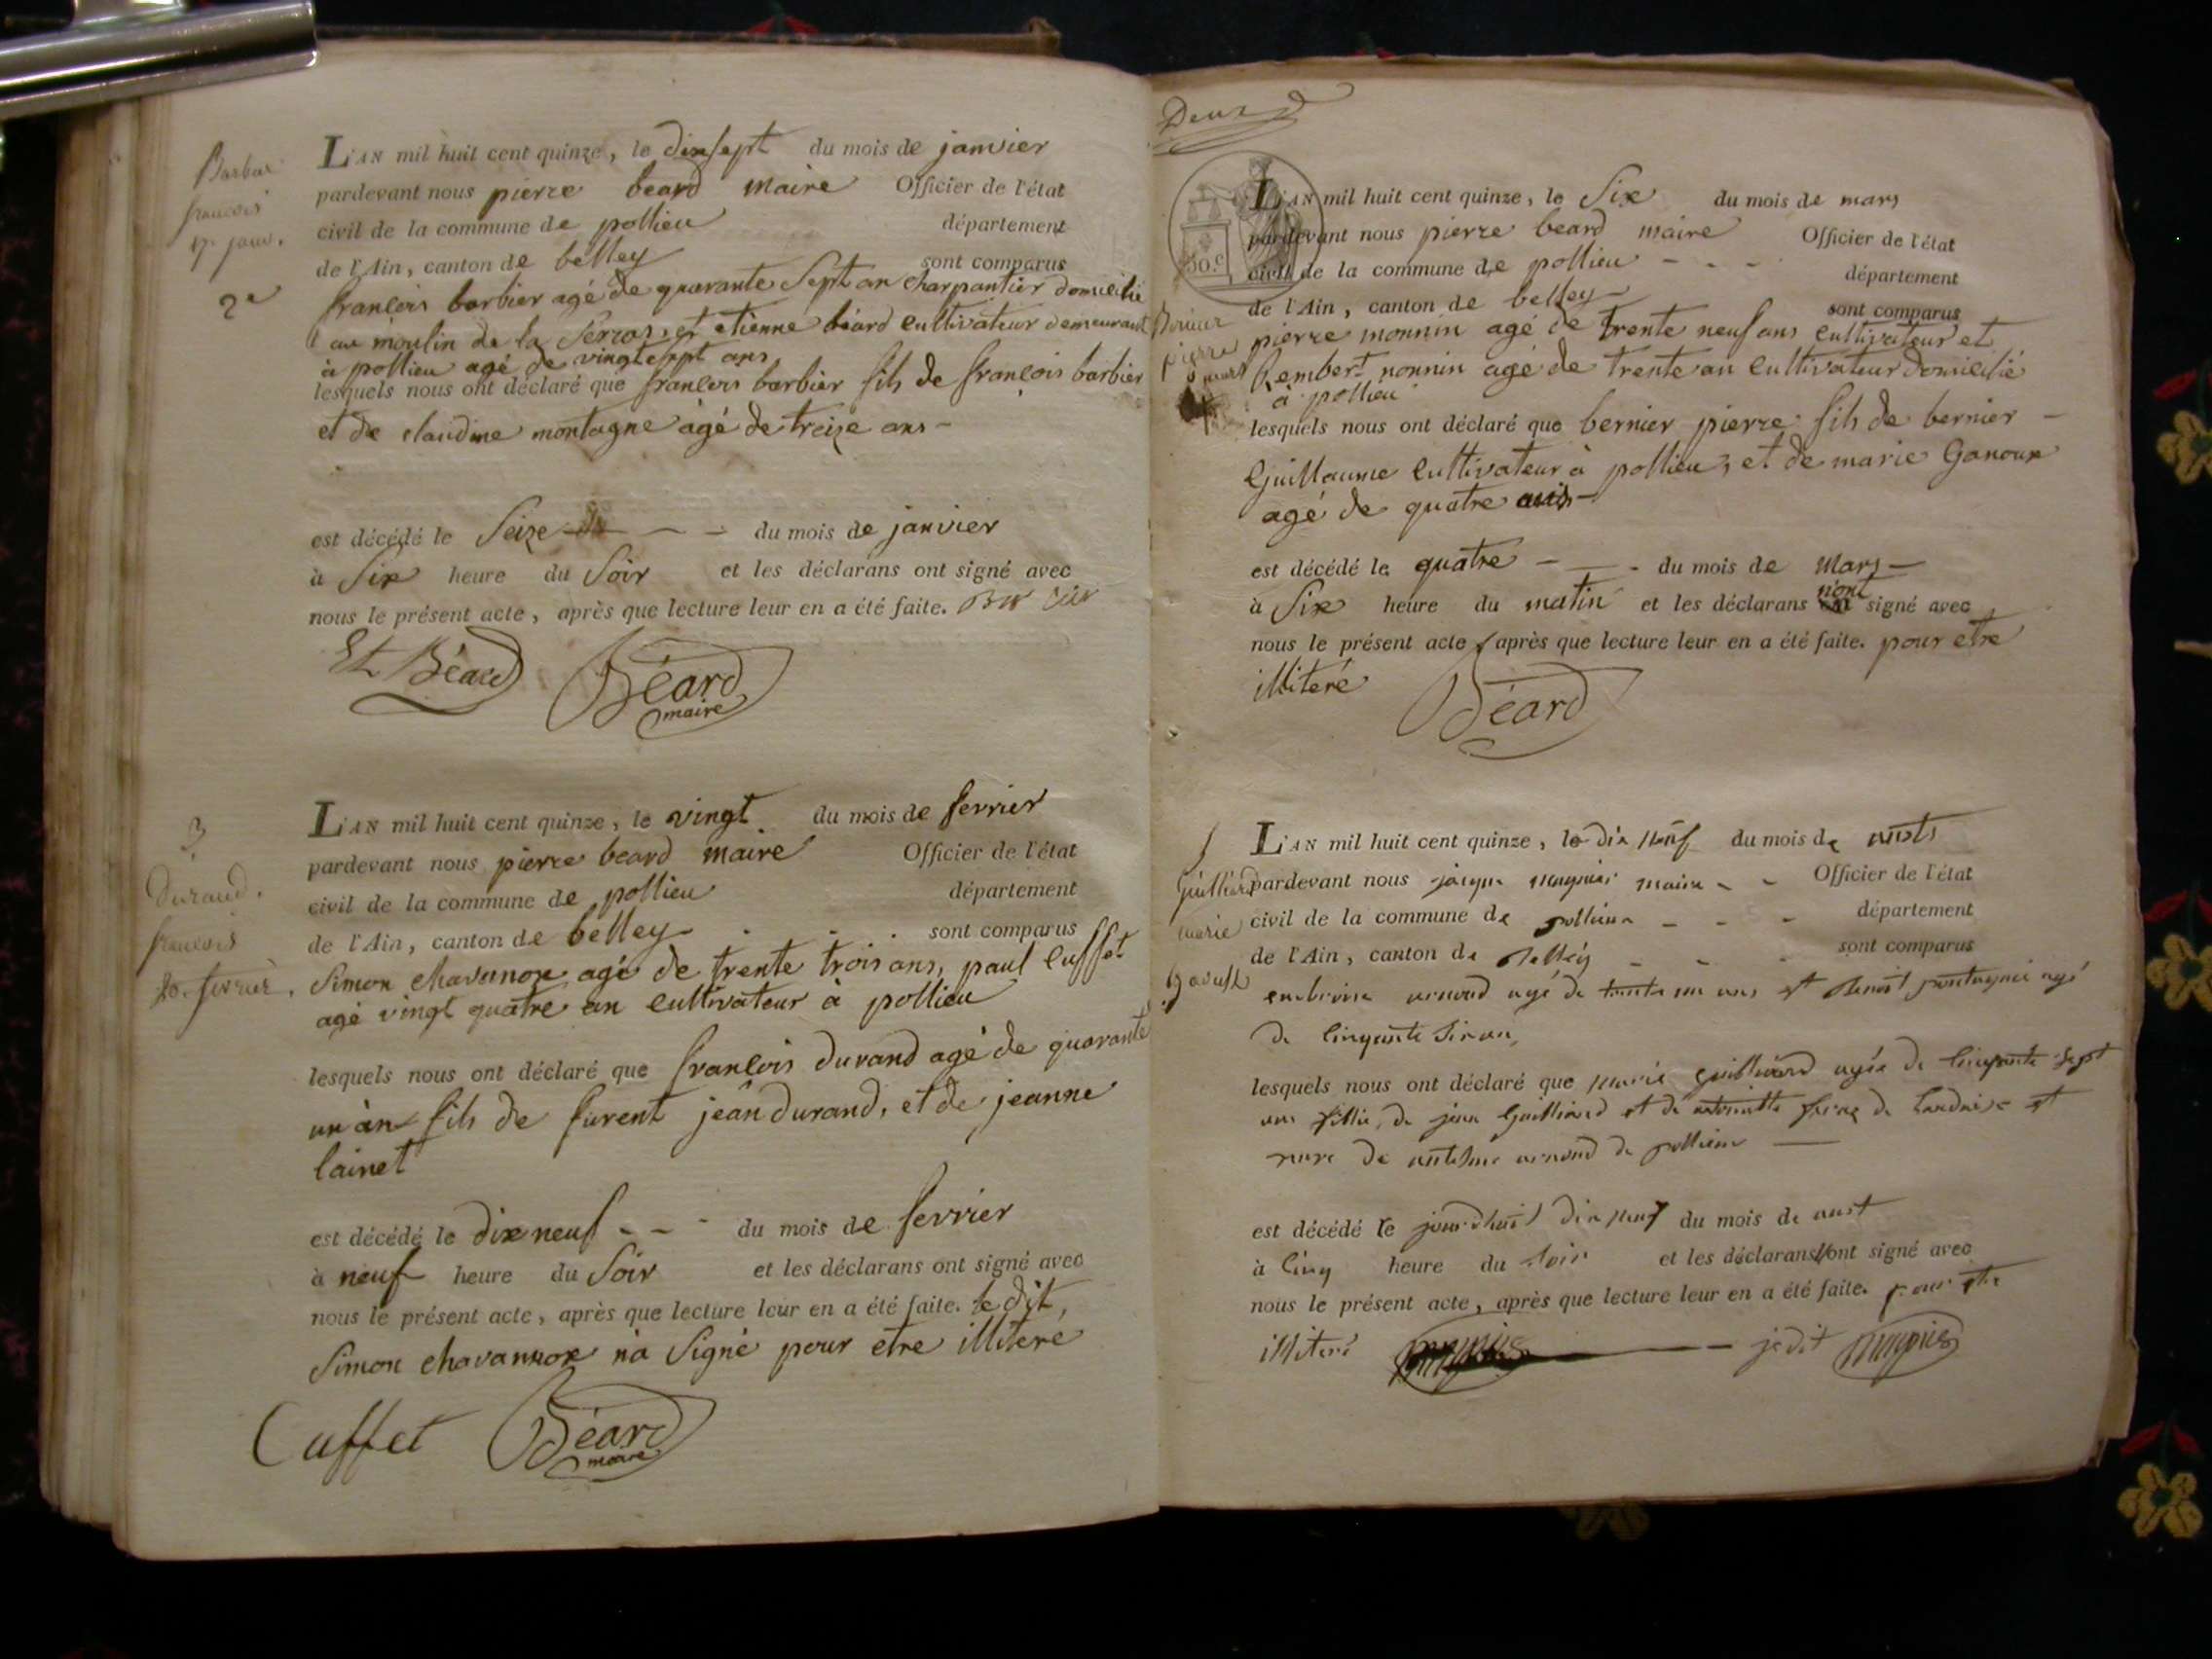 Barbier
françois
17. janv.
2e
L'AN mil huit cent quinze, le dixsept du mois de janvier
pardevant nous pierre beard maire Officier de l'état
civil de la commune de pollieu département
de l'Ain, canton de belley sont comparus
françois barbier agé de quarante sept an charpantier domicilié
au moulin de la Serraz, et etienne béard cultivateur demeurant
à pollieu agé de vingt sept ans
lesquels nous ont déclaré que françois barbier fils de françois barbier
et de claudine montagne àgé de treize ans -
est décédé le Seize du mois de janvier
à Six heure du Soir et les déclarans ont signé avec
nous le présent acte, après que lecture leur en a été faite.
Et Béard Béard
maire
3
Durand.
françois
20. fevrier.
L'AN mil huit cent quinze, le vingt du mois de fevrier
pardevant nous pierre beard maire Officier de l'état
civil de la commune de pollieu département
de l'Ain, canton de belley sont comparus
Simon chavanox agé de trente trois ans, paul Cuffet
agé vingt quatre an cultivateur à pollieu
lesquels nous ont déclaré que françois durand agé de quarante
un àn fils de furent jean durand, et de jeanne
lainet
est décédé le dix neuf - - - du mois de fevrier
à neuf heure du Soir et les déclarans ont signé avec
nous le présent acte, après que lecture leur en a été faite. le dit,
Simon chavannox na Signé pour etre illiteré
Cuffet Béard
maire
Deux
30.c
pierre
L'AN mil huit cent quinze, le Six du mois de mars
pardevant nous pierre beard maire Officier de l'état
civil de la commune de pollieu - - - département
de l'Ain, canton de belley sont comparus
pierre monnin agé de trente neuf ans cultivateur et
Rembert monnin agé de trente an cultivateur domicilié
a pollieu
lesquels nous ont déclaré que bernier pierre fils de bernier -
Guillaume cultivateur à pollieu, et de marie Ganoux
agé de quatre ans -
est décédé le quatre - - - du mois de Mars -
à Six heure du matin et les déclarans nont signé avec
nous le présent acte, après que lecture leur en a été faite. pour etre
illiteré Béard
Guilliard
marie
19 aoust
L'AN mil huit cent quinze, le dix neuf du mois de
pardevant nous jacque magnier maire - - Officier de l'état
civil de la commune de pollieux - - - département
de l'Ain, canton de Belley - - - sont comparus
arnond agé de trente un ans et Benoit agé
de cinquante six an,
lesquels nous ont déclaré que marie guilliard agée de cinquante sept
ans fillie, de jean Guilliard et de antoinette de et
de antelme arnond de pollieux -
est décédé le jourdhuit dix neuf du mois de aust
à cinq heure du soir et les déclarans nont signé avec
nous le présent acte, après que lecture leur en a été faite. pour etre
illiteré je dit magnier